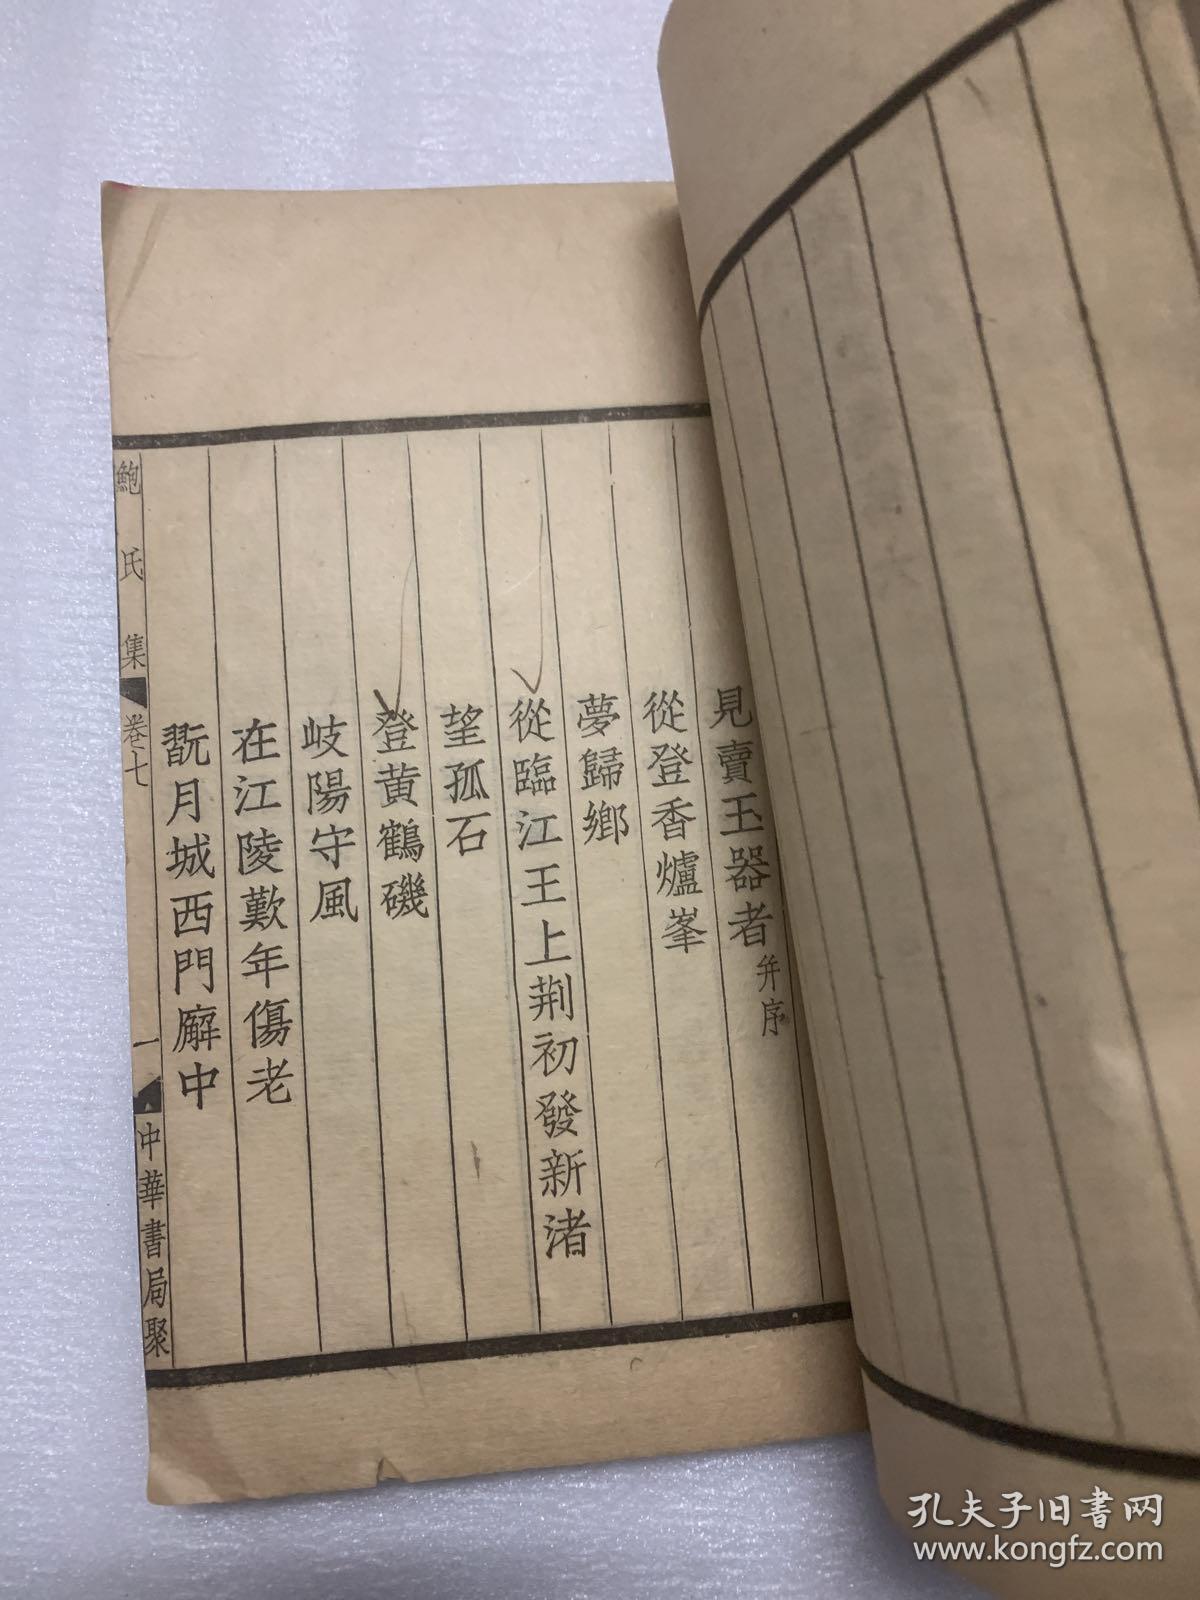 見賣玉器者并序
從登香爐峯
夢歸鄉
從臨江王上荆初發新渚
望孤石
登黃鶴磯
岐陽守風
在江陵歎年傷老
翫月城西門廨中
鮑氏集 卷七 一 中華書局聚
孔夫子旧书网
www.kongfz.com